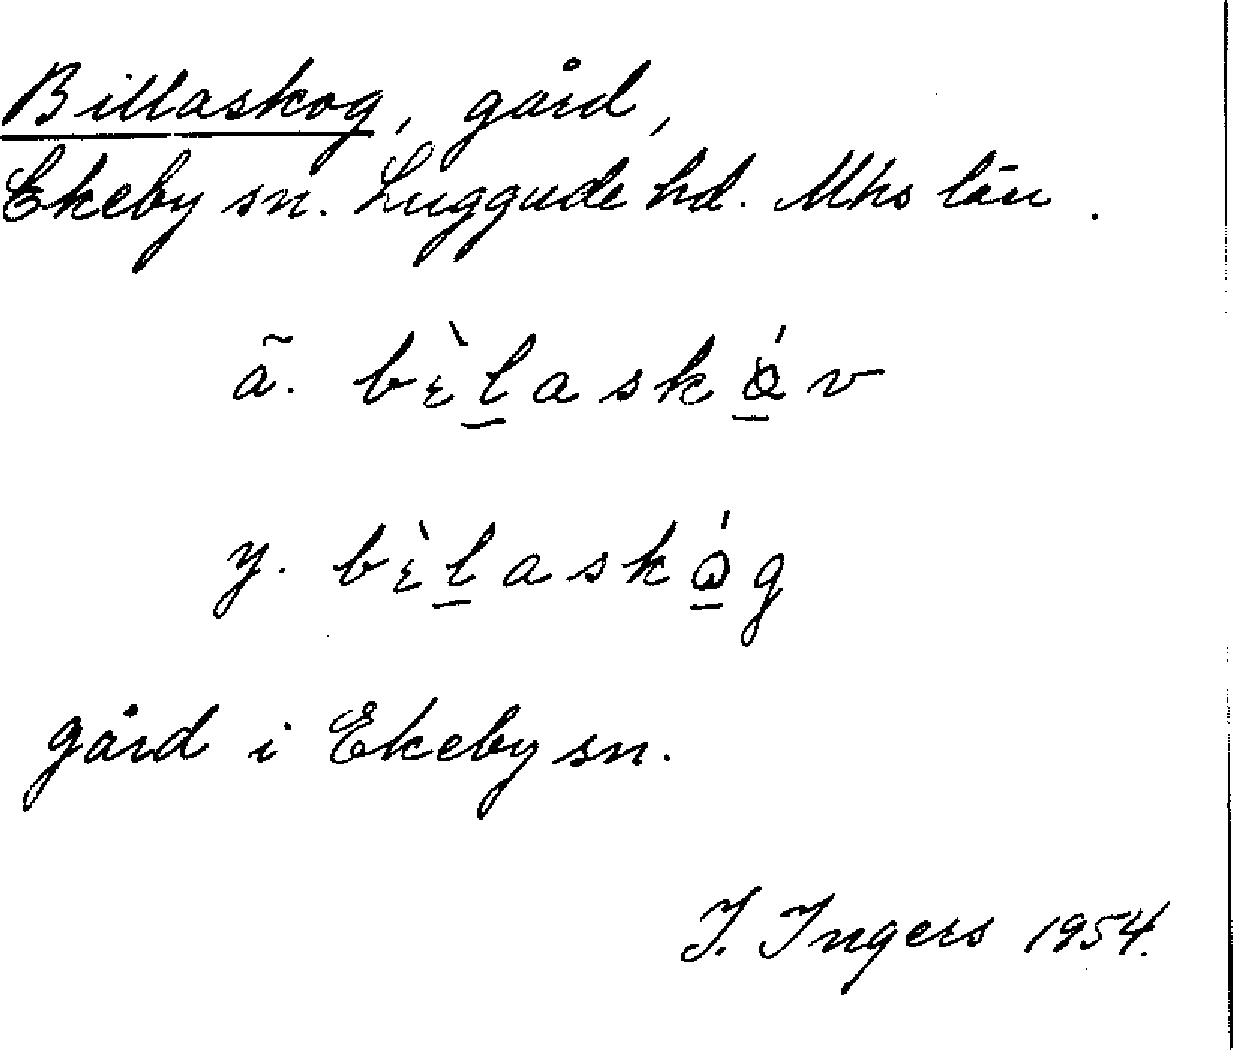 Billaskog, gård,
Ekeby sn. Luggude hd. Mhs län.
ä. bὲl̲askǫ̲́v
y. bὲl̲askǫ̲́g
gård i Ekeby sn.
I. Ingers 1954.